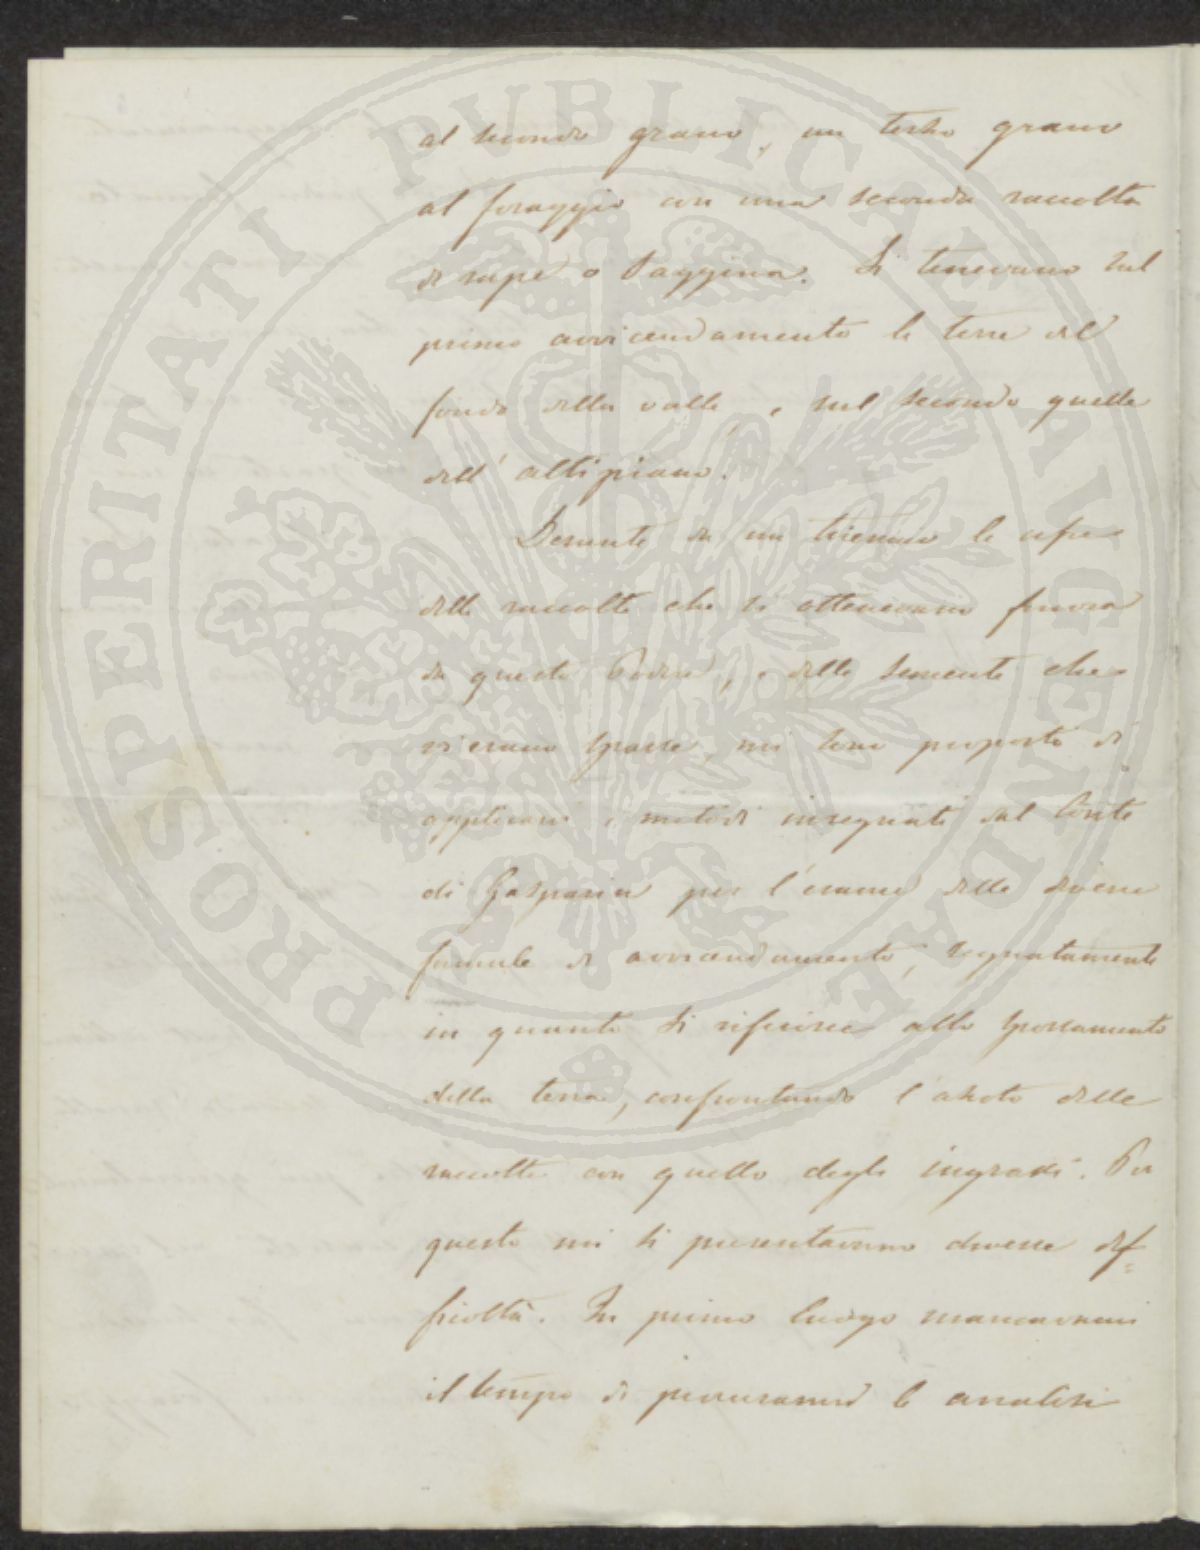 al secondo grano, un terzo grano
al foraggio con una seconda raccolta
di rape o saggina. Si tenevano sul
primo avvicendamento le terre del
fondo della valle, e sul secondo quelle
dell'altipiano.
Desunte da un triennio le cifre
delle raccolte che si ottenevano finora
da questo Podere, e delle sementi che
vi erano sparse, mi sono proposto di
applicarvi i metodi insegnati dal Conte
di Gasparin per l'esame delle diverse
formule di avvicendamento, segnatamente
in quanto si riferisce allo spossamento
della terra, confrontando l'azoto delle
raccolte con quello degli ingrassi. Per
questo mi si presentavano diverse dif=
ficoltà. In primo luogo mancavami
il tempo di procurarmi le analisi
PROSPERITATI PUBLICAE AUGENDAE